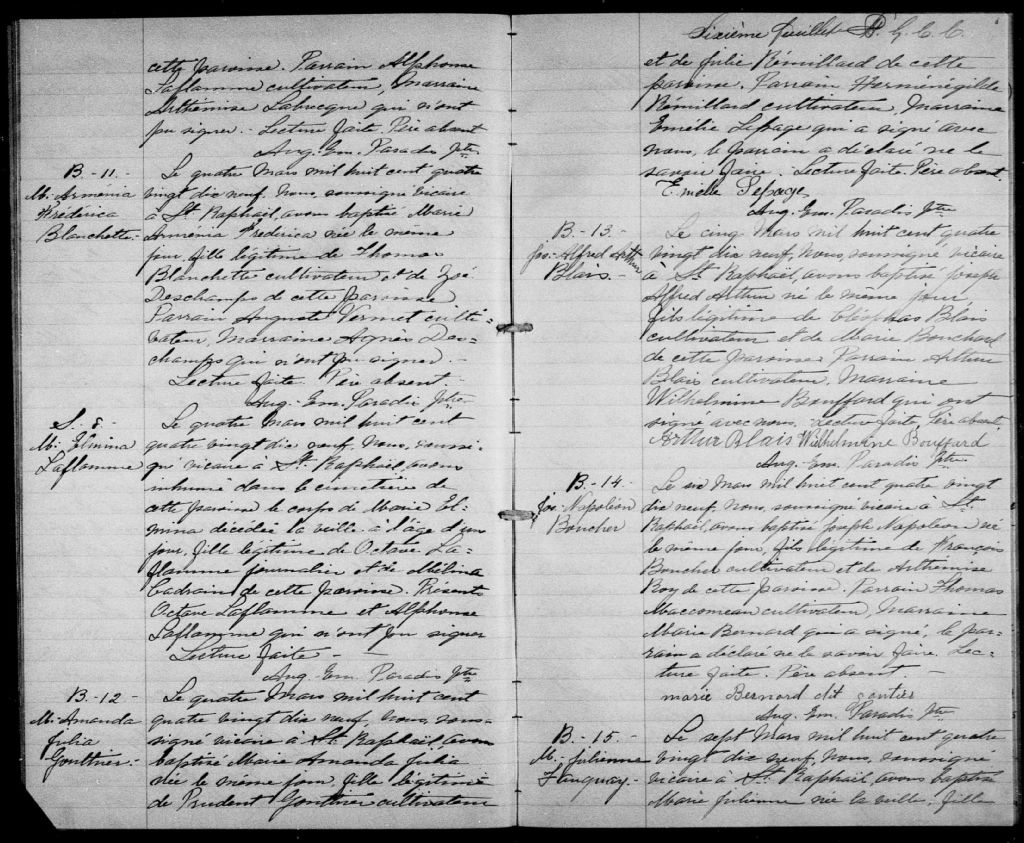 cette paroisse. Parrain Alphonse
Laflamme cultivateur, Marraine
Arthémise Labrecque qui n'ont
pu signer. - Lecture faite. Père absent
Aug. Em. Paradis Ptre
B - 11 -
M. Arménia
Frédérica
Blanchette -
Le quatre Mars mil huit cent quatre
vingt dix neuf, Nous, soussigné vicaire
à St. Raphaël, avons baptisé Marie
Arménia Frederica née le même
jour, fille légitime de Thomas
Blanchette cultivateur et de Zoé
Deschamps de cette paroisse.
Parrain Auguste Vermet culti-
vateur, Marraine Agnès Des-
champs qui n'ont pu signer. -
Lecture faite. Père absent. -
Aug. Em. Paradis Ptre
S. - 8 -
M. Elmina
Laflamme
Le quatre Mars mil huit cent
quatre vingt dix neuf, Nous, soussi-
gné vicaire à St. Raphaël, avons
inhumé dans le cimetière de
cette paroisse le corps de Marie El-
mina décédée la veille à l'âge d'un
jour, fille légitime de Octave La-
flamme journalier et de Mélina
Cadrain de cette paroisse. Présents
Octave Laflamme et Alphonse
Laflamme qui n'ont pu signer
Lecture faite -
Aug. Em. Paradis Ptre
B - 12 -
M. Amanda
Julia
Gonthier -
Le quatre Mars mil huit cent
quatre vingt dix neuf, Nous, sous-
signé vicaire à St. Raphaël, avons
baptisé Marie Amanda Julia
née le même jour, fille légitime
de Prudent Gonthier cultivateur
Sixième feuillet P. G. C. C.
et de Julie Rémillard de cette
paroisse. Parrain Herménégilde
Rémillard cultivateur, Marraine
Emélie Lepage qui a signé avec
nous, le parrain a déclaré ne le
savoir faire. Lecture faite. Père absent.
Emélie Lepage
Aug. Em. Paradis Ptre
B. - 13 -
Jos. Alfred Arthur
Blais. -
Le cinq Mars mil huit cent quatre
vingt dix neuf, Nous, soussigné, vicaire
à St. Raphaël, avons baptisé Joseph
Alfred Arthur né le même jour
fils légitime de Cléophas Blais
cultivateur et de Marie Bouchard
de cette paroisse Parrain Arthur
Blais cultivateur, Marraine
Wilhelmine Bouffard qui ont
signé avec nous. Lecture faite, Père absent
Arthur Blais Wilhelmine Bouffard
Aug. Em. Paradis Ptre
B - 14 -
Jos. Napoléon
Boucher
Le six Mars mil huit cent quatre vingt
dix neuf, Nous, soussigné vicaire à St.
Raphaël, avons baptisé Joseph Napoleon né
le même jour, fils légitime de François
Boucher cultivateur et de Arthémise
Roy de cette paroisse. Parrain Thomas
cultivateur, Marraine
Marie Bernard qui a signé, le par-
rain a déclaré ne le savoir faire. Lec-
ture faite. Père absent -
marie Bernard dit gontier
Aug. Em. Paradis Ptre
B. - 15 -
M. Julienne
Le sept Mars mil huit cent quatre
vingt dix neuf, Nous, soussigné
vicaire à St. Raphaël, avons baptisé
Marie Julienne née la veille, fille